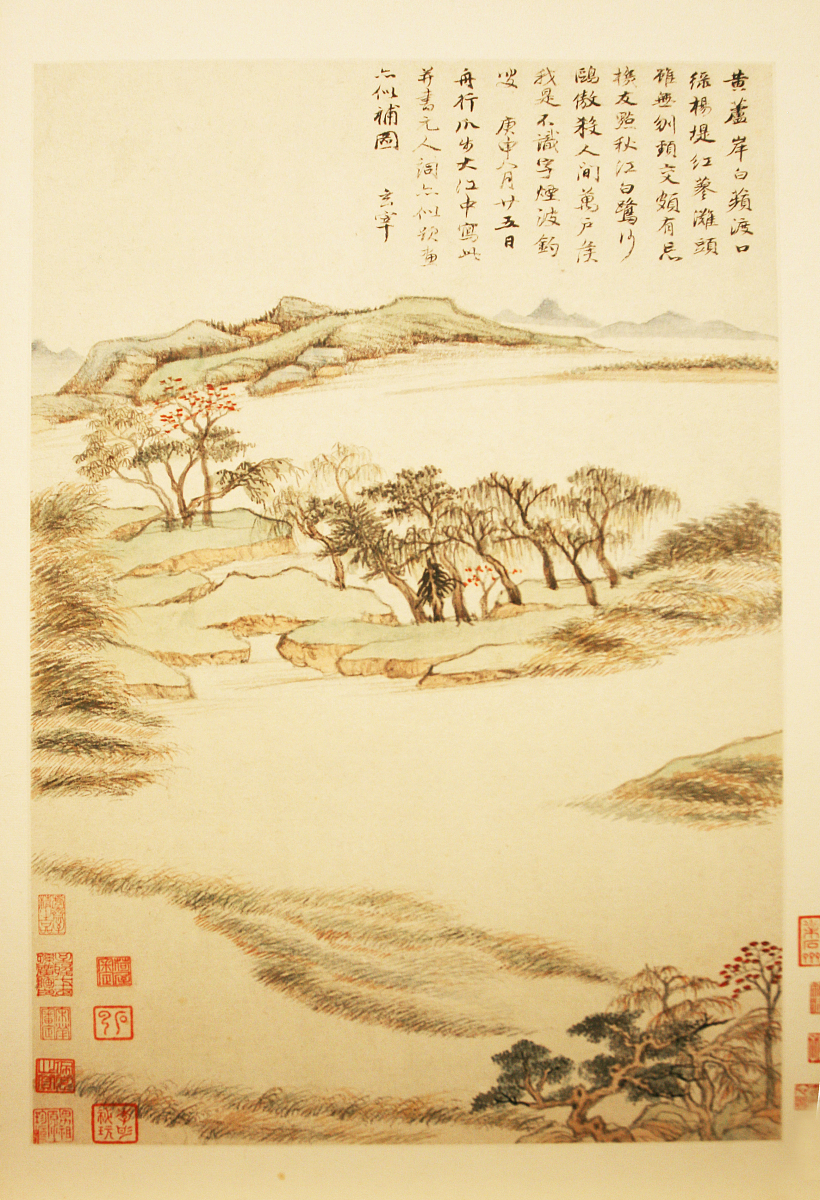 黄蘆岸白蘋渡口
綠楊堤紅蓼灘頭
雖無刎頸交頗有忘
機友點秋江白鷺沙
鷗傲殺人間萬戶侯
我是不識字煙波釣
叟 庚申八月廿五日
舟行瓜步大江中寫此
并書元人詞亦似題畫
亦似補圖 玄宰